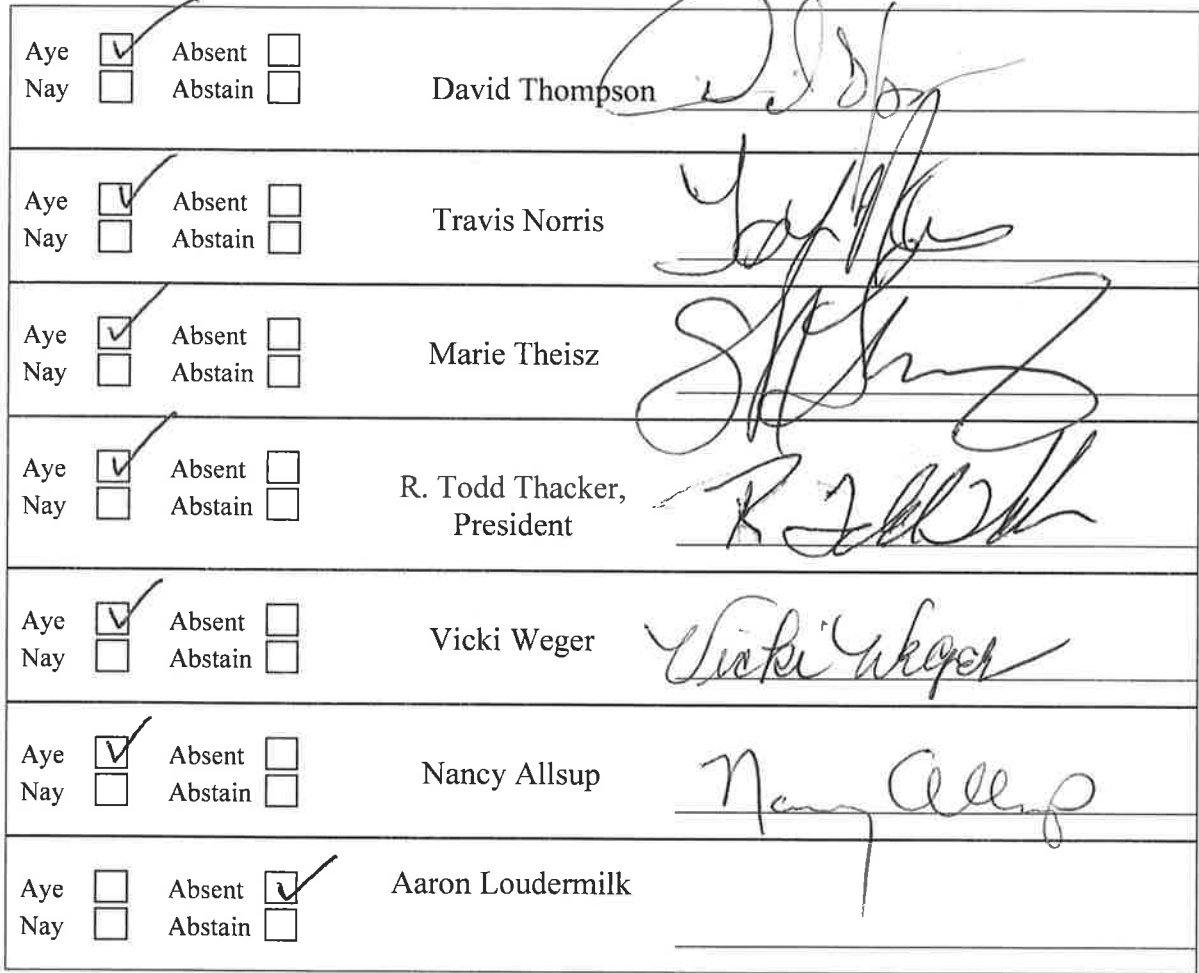 Aye ☑ Absent ☐
Nay ☐ Abstain ☐
David Thompson
Aye ☑ Absent ☐
Nay ☐ Abstain ☐
Travis Norris
Aye ☑ Absent ☐
Nay ☐ Abstain ☐
Marie Theisz
Aye ☑ Absent ☐
Nay ☐ Abstain ☐
R. Todd Thacker,
President
R Todd Th
Aye ☑ Absent ☐
Nay ☐ Abstain ☐
Vicki Weger
Vicki Weger
Aye ☑ Absent ☐
Nay ☐ Abstain ☐
Nancy Allsup
Nancy Allsup
Aye ☐ Absent ☑
Nay ☐ Abstain ☐
Aaron Loudermilk